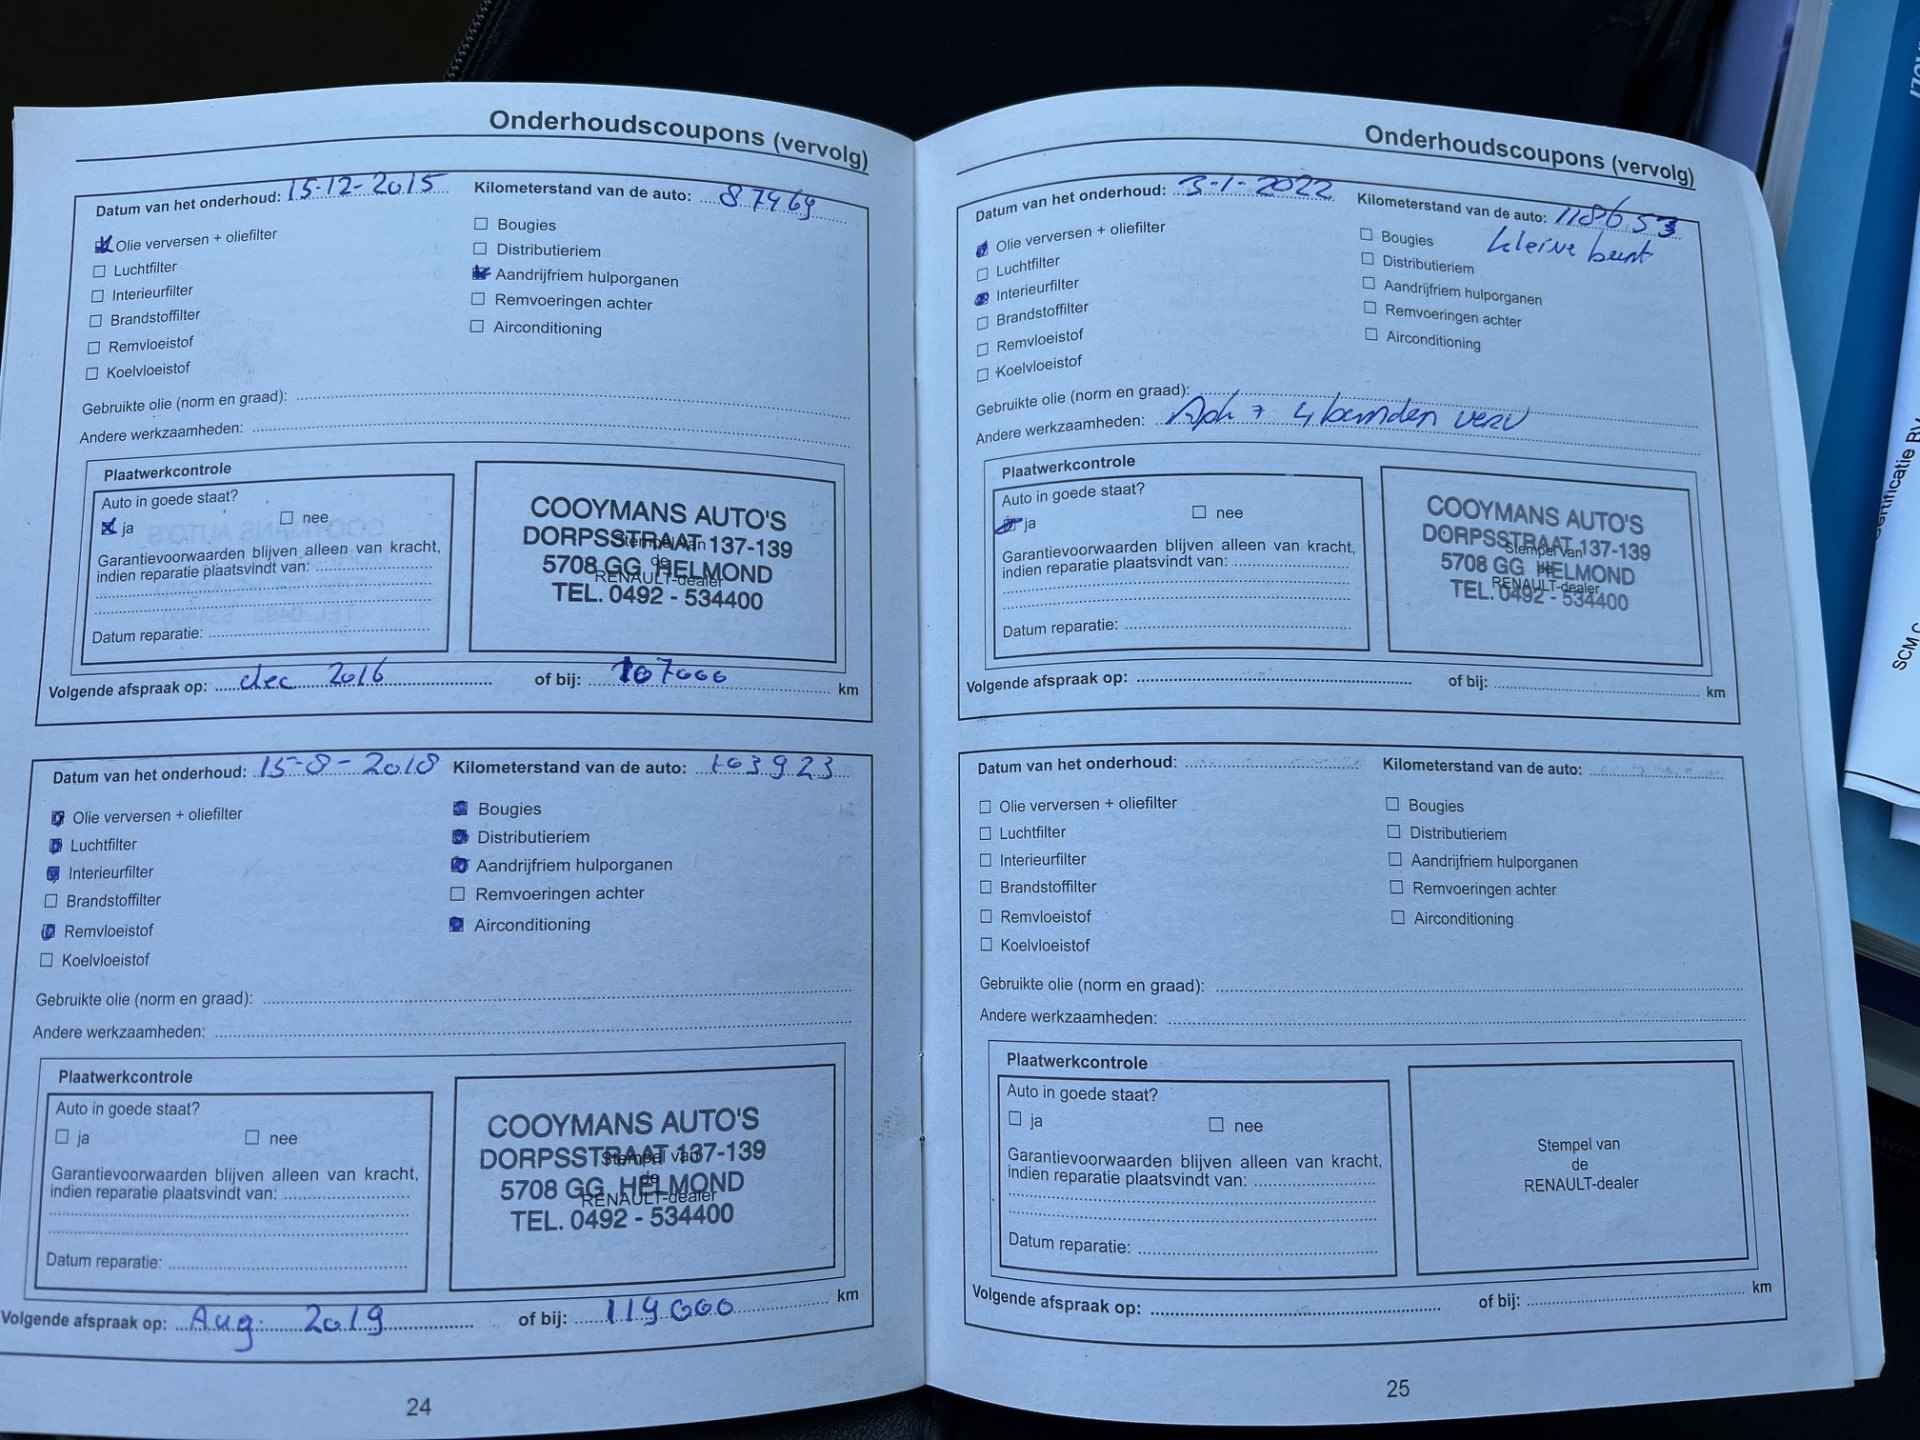 Onderhoudscoupons (vervolg)
Datum van het onderhoud: 15-12-2015 Kilometerstand van de auto: 87469
Olie verversen + oliefilter
Luchtfilter
Interieurfilter
Brandstoffilter
Remvloeistof
Koelvloeistof
Bougies
Distributieriem
Aandrijfriem hulporganen
Remvoeringen achter
Airconditioning
Gebruikte olie (norm en graad):
Andere werkzaamheden:
Plaatwerkcontrole
Auto in goede staat?
ja nee
Garantievoorwaarden blijven alleen van kracht,
indien reparatie plaatsvindt van:
Datum reparatie:
COOYMANS AUTO'S
DORPSSTRAAT 137-139
5708 GG HELMOND
TEL. 0492 - 534400
Stempel van
de
RENAULT-dealer
Volgende afspraak op: dec 2016 of bij: 107000 km
Datum van het onderhoud: 15-8-2018 Kilometerstand van de auto: 103923
Olie verversen + oliefilter
Luchtfilter
Interieurfilter
Brandstoffilter
Remvloeistof
Koelvloeistof
Bougies
Distributieriem
Aandrijfriem hulporganen
Remvoeringen achter
Airconditioning
Gebruikte olie (norm en graad):
Andere werkzaamheden:
Plaatwerkcontrole
Auto in goede staat?
ja nee
Garantievoorwaarden blijven alleen van kracht,
indien reparatie plaatsvindt van:
Datum reparatie:
COOYMANS AUTO'S
DORPSSTRAAT 137-139
5708 GG HELMOND
TEL. 0492 - 534400
Stempel van
de
RENAULT-dealer
Volgende afspraak op: Aug. 2019 of bij: 119000 km
24
Onderhoudscoupons (vervolg)
Datum van het onderhoud: 3-1-2022 Kilometerstand van de auto: 118653
kleine beurt
Olie verversen + oliefilter
Luchtfilter
Interieurfilter
Brandstoffilter
Remvloeistof
Koelvloeistof
Bougies
Distributieriem
Aandrijfriem hulporganen
Remvoeringen achter
Airconditioning
Gebruikte olie (norm en graad):
Andere werkzaamheden: Apk + 4 banden verv
Plaatwerkcontrole
Auto in goede staat?
ja nee
Garantievoorwaarden blijven alleen van kracht,
indien reparatie plaatsvindt van:
Datum reparatie:
COOYMANS AUTO'S
DORPSSTRAAT 137-139
5708 GG HELMOND
TEL. 0492 - 534400
Stempel van
de
RENAULT-dealer
Volgende afspraak op: of bij: km
Datum van het onderhoud: Kilometerstand van de auto:
Olie verversen + oliefilter
Luchtfilter
Interieurfilter
Brandstoffilter
Remvloeistof
Koelvloeistof
Bougies
Distributieriem
Aandrijfriem hulporganen
Remvoeringen achter
Airconditioning
Gebruikte olie (norm en graad):
Andere werkzaamheden:
Plaatwerkcontrole
Auto in goede staat?
ja nee
Garantievoorwaarden blijven alleen van kracht,
indien reparatie plaatsvindt van:
Datum reparatie:
Stempel van
de
RENAULT-dealer
Volgende afspraak op: of bij: km
25